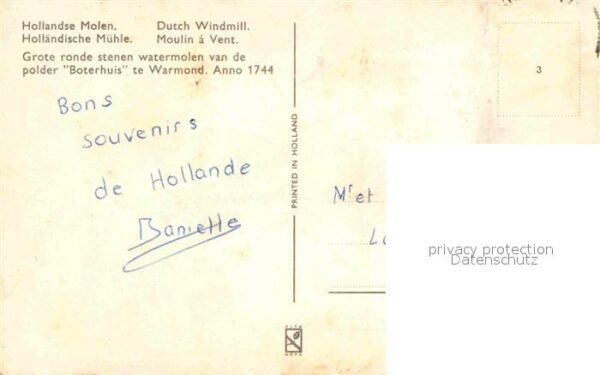 Hollandse Molen. Dutch Windmill.
Holländische Mühle. Moulin á Vent.
Grote ronde stenen watermolen van de
polder "Boterhuis" te Warmond. Anno 1744
Bons
souvenirs
de Hollande
PRINTED IN HOLLAND
3
Mr et
privacy protection
Datenschutz